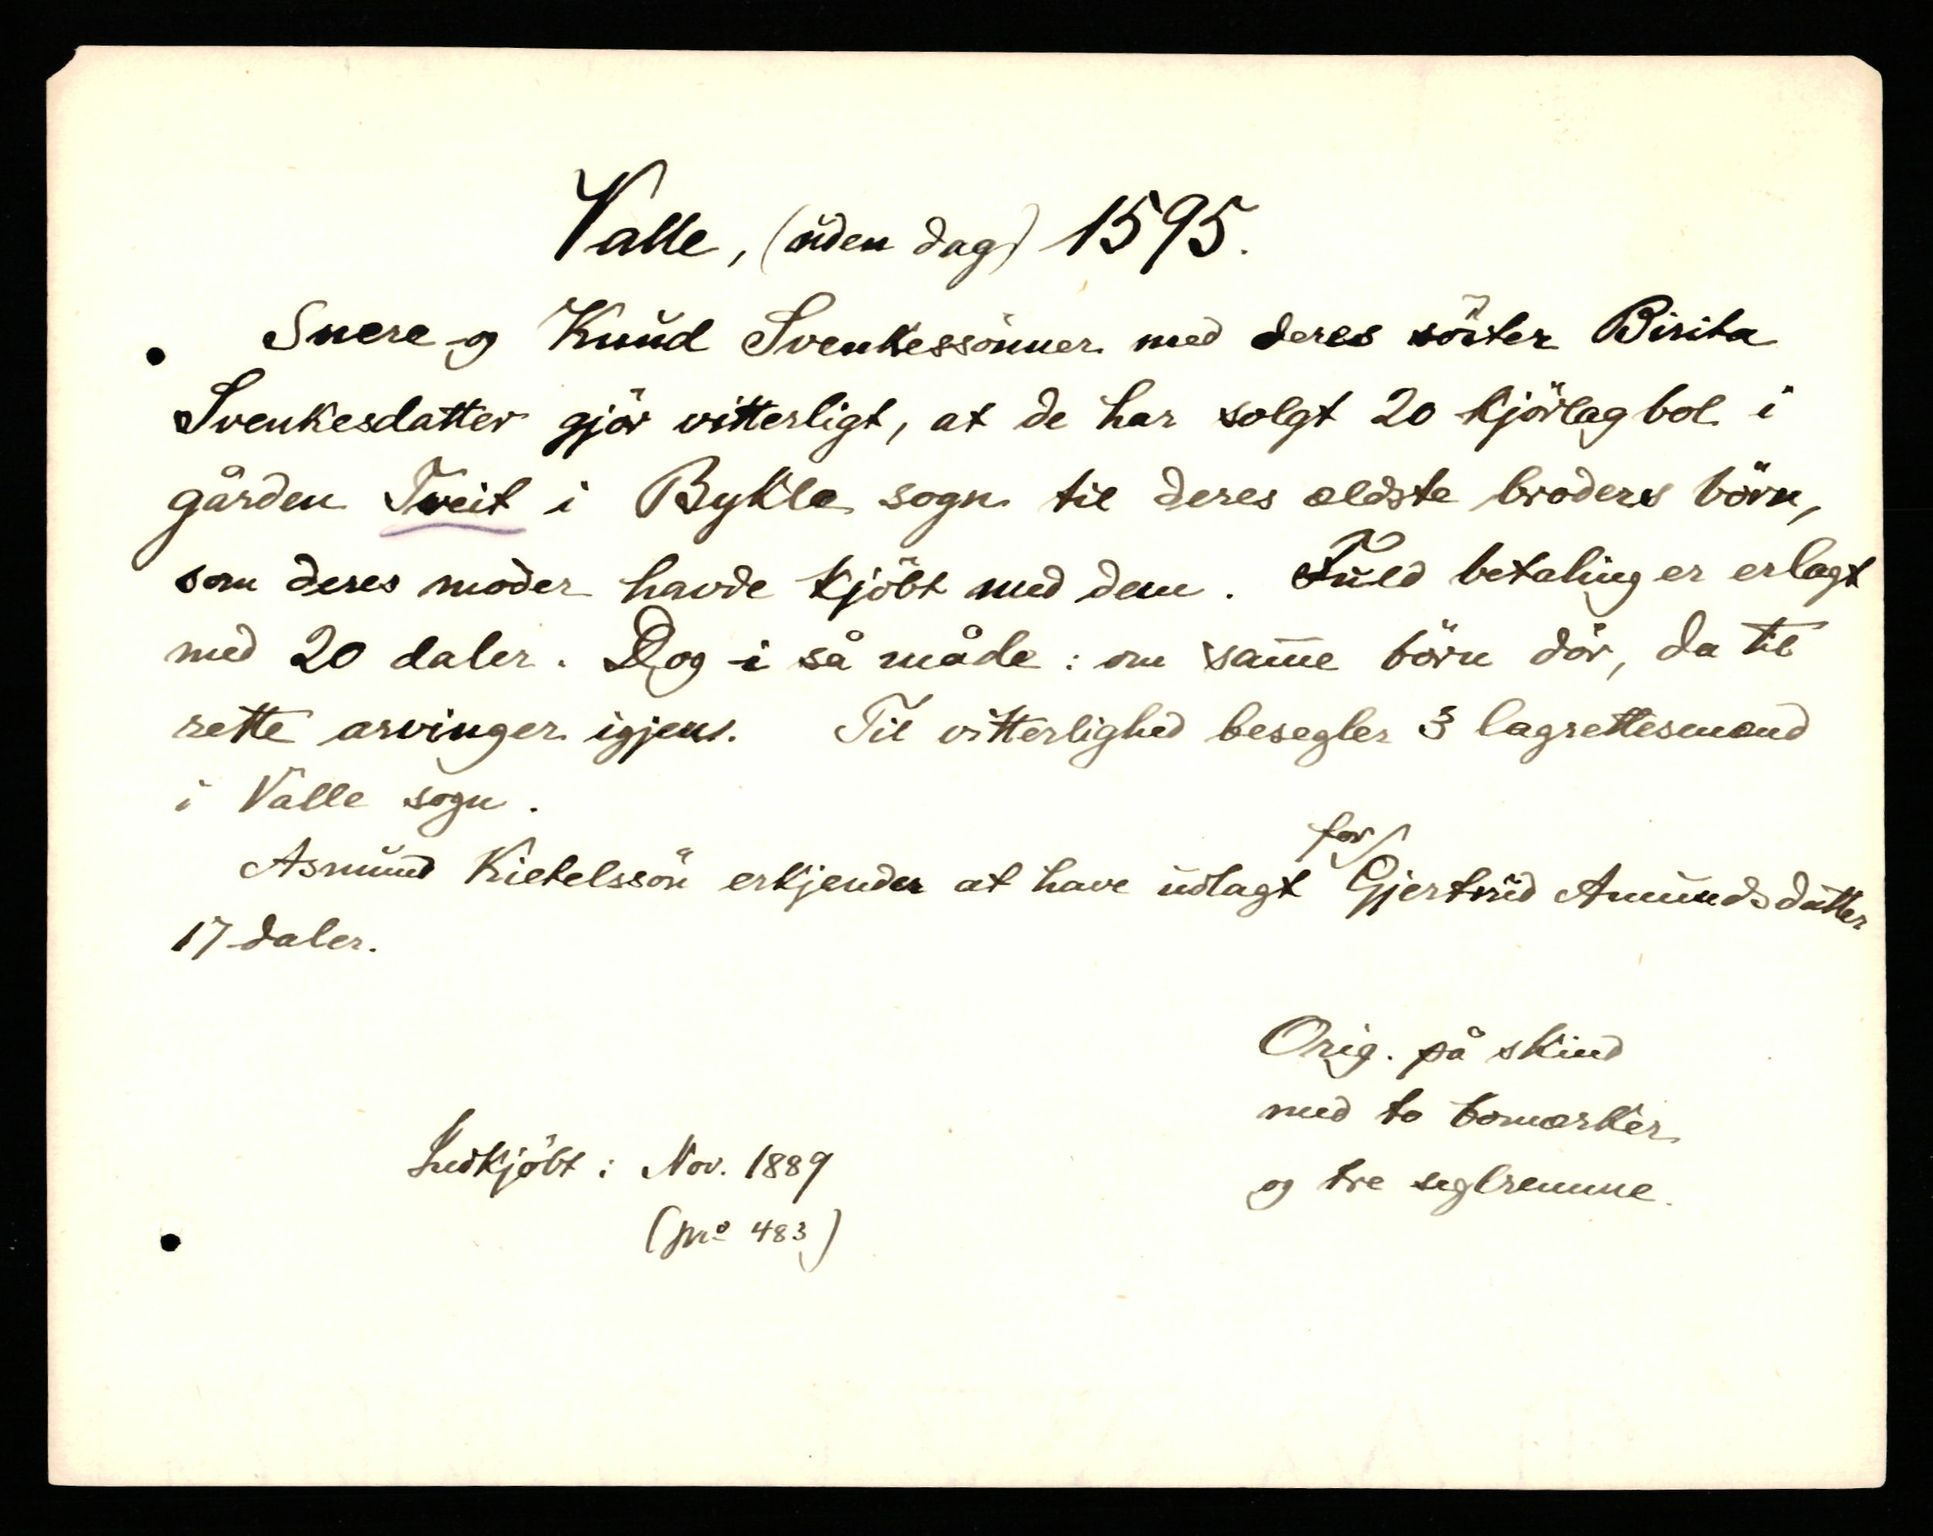 Valle, (uden dag) 1595.
Snere og Knud Svenkessönner med deres söster Birita
Svenkesdatter gjör vitterligt, at de har solgt 20 kjörlag bol i
gården Tveit i Bykle sogn til deres ældste broders börn,
som deres moder havde kjöbt med dem. Fuld betaling er erlagt
med 20 daler. Dog i så måde: om sam̅e börn dör, da til
rette arvinger igjen. Til vitterlighed besegler 3 lagrettesmænd
i Valle sogn.
Asmund Kietelssön erkjender at have udlagt for Gjertrud Amundsdatter
17 daler.
Orig. på skind
med to bomærker
og tre seglremme.
Indkjöbt: Nov. 1889
(pr. 483)